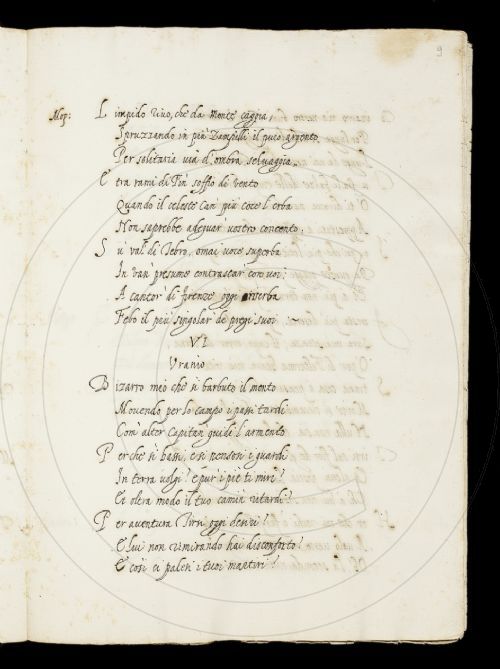 9
Mop: Limpido rivo, che da monte cagia,
Spruzzando in più zampilli il puro argento
Per solitaria via d'ombra selvaggia.
E tra rami di Pin soffio di vento
Quando il celeste Can più coce l'erba
Non saprebbe adeguar vostro concento.
Su i val di Tebro, omai voce superba
In van presume contrastar con voi:
A cantor di Firenze oggi riserba
Febo il più singolar de pregi suoi
VI
Uranio
Bizarro mio che si barbuto il mento
Movendo per lo campo i passi tardi
Com' alter Capitan guidi l'armento
Perche si bassi, e si pensosi i guardi
In terra volgi? e pur i piè ti miri?
Et oltra modo il tuo camin ritardi?
Per aventura Tirsi oggi desiri?
E lui non rimirando hai disconforto?
E così ci palesi i tuoi martiri?